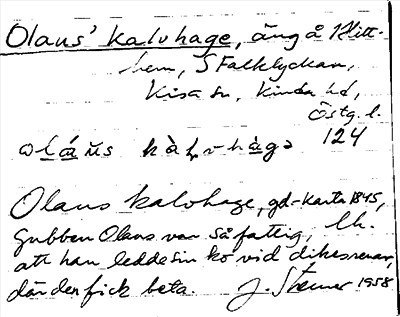 Olaus' kalvhage, äng å Klitt-
hem, S Falklyckan,
Kisa sn, Kinda hd,
Östg. l.
124
Olaus kalvhage, gd-karta 1845,
Gubben Olaus var så fattig, lh.
att han ledde sin ko vid dikesrenar,
där den fick beta. J. Stenor 1958